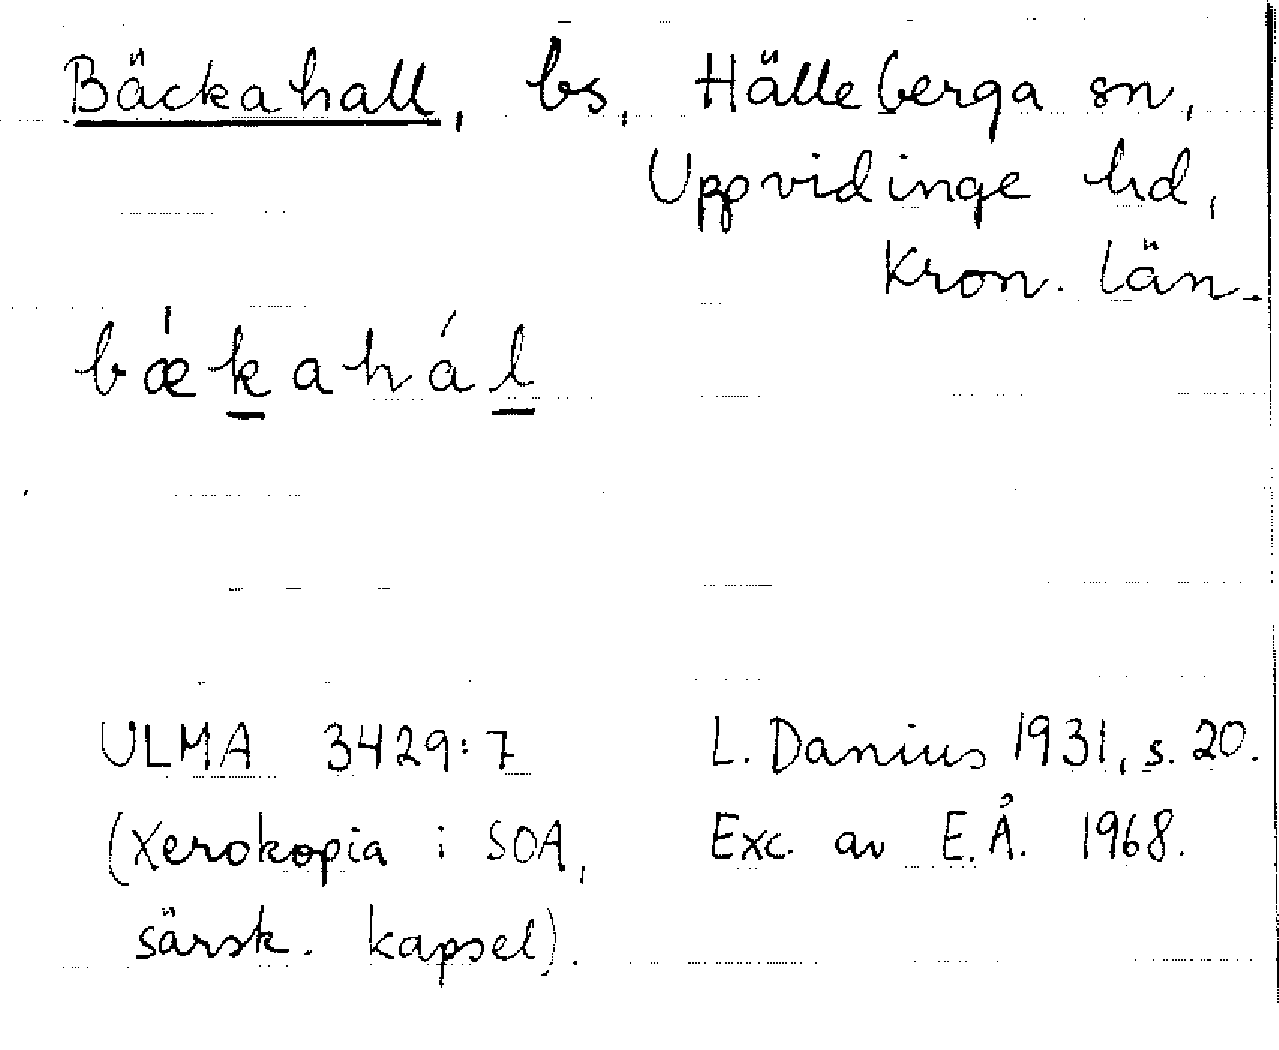 Bäckahall, bs, Hälleberga sn,
Uppvidinge hd,
Kron. län.
bǽkahál
ULMA 3429:7
(Xerokopia i SOA,
särsk. kapsel).
L. Danius 1931, s. 20.
Exc. av E.Å. 1968.